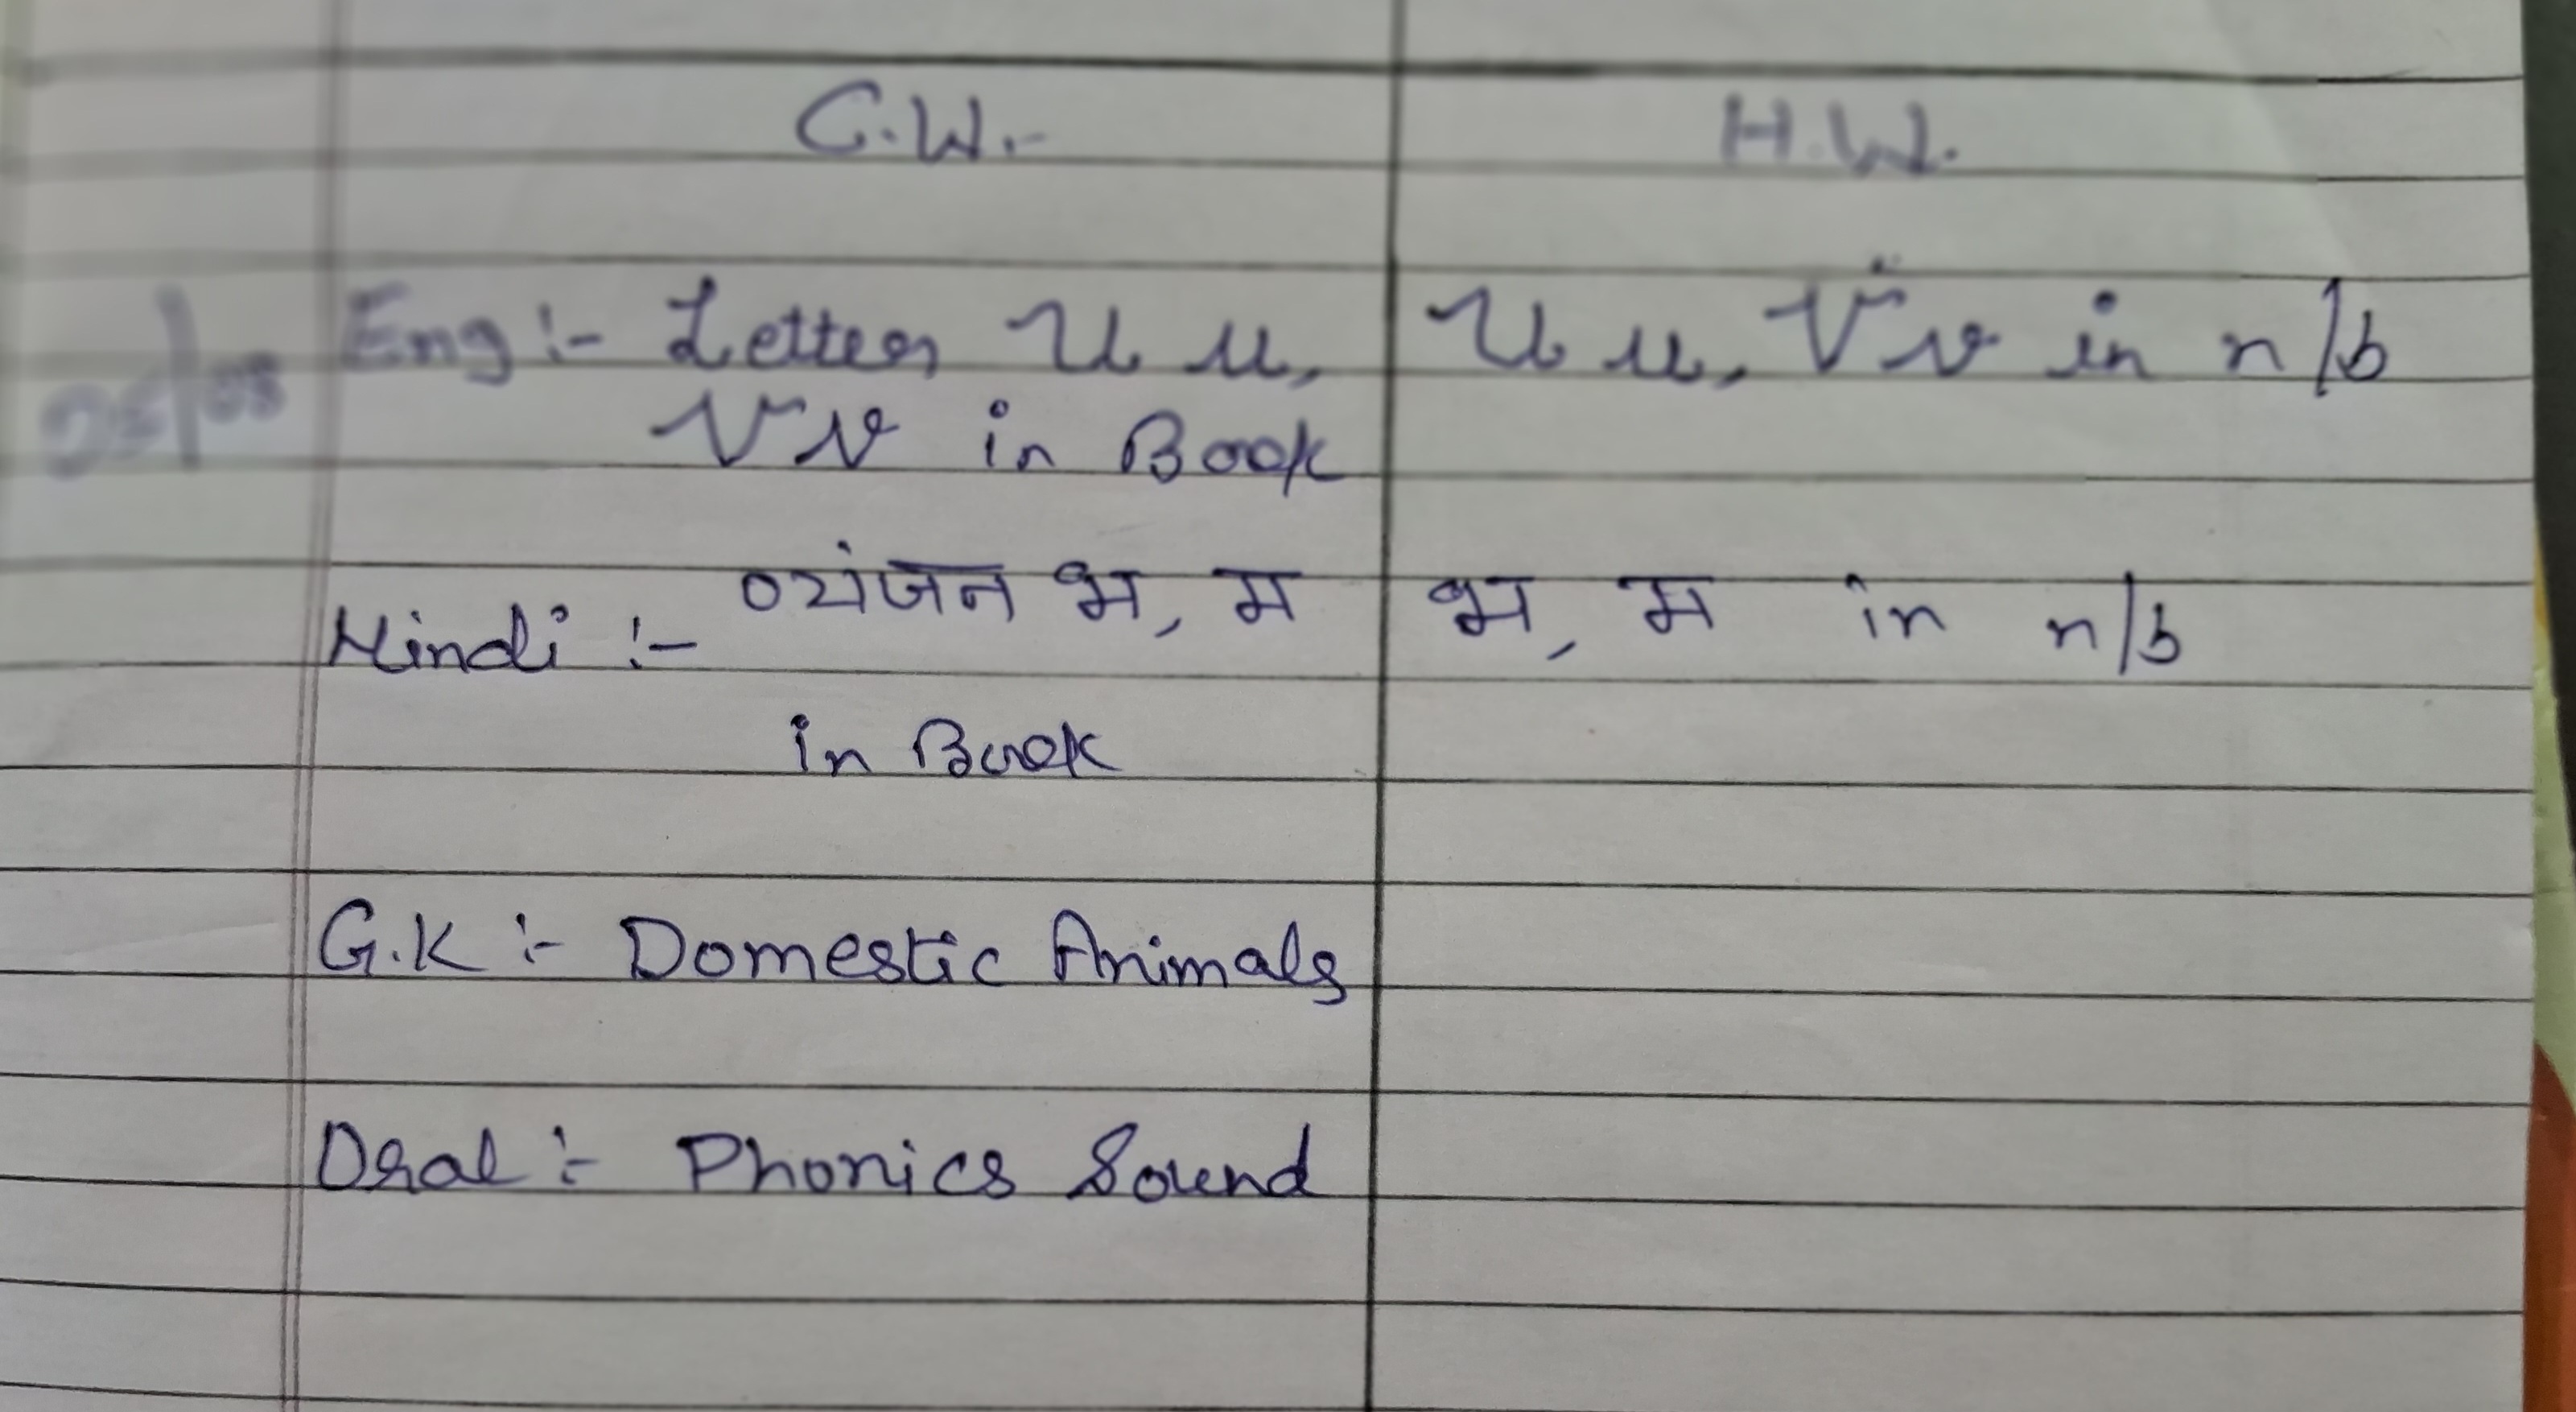 C.W.- H.W.
05/08 Eng :- Letter U u, U u, V v in n/b
V v in Book
Hindi :- व्यंजन भ, म भ, म in n/b
in Book
G.K :- Domestic Animals
Oral :- Phonics Sound